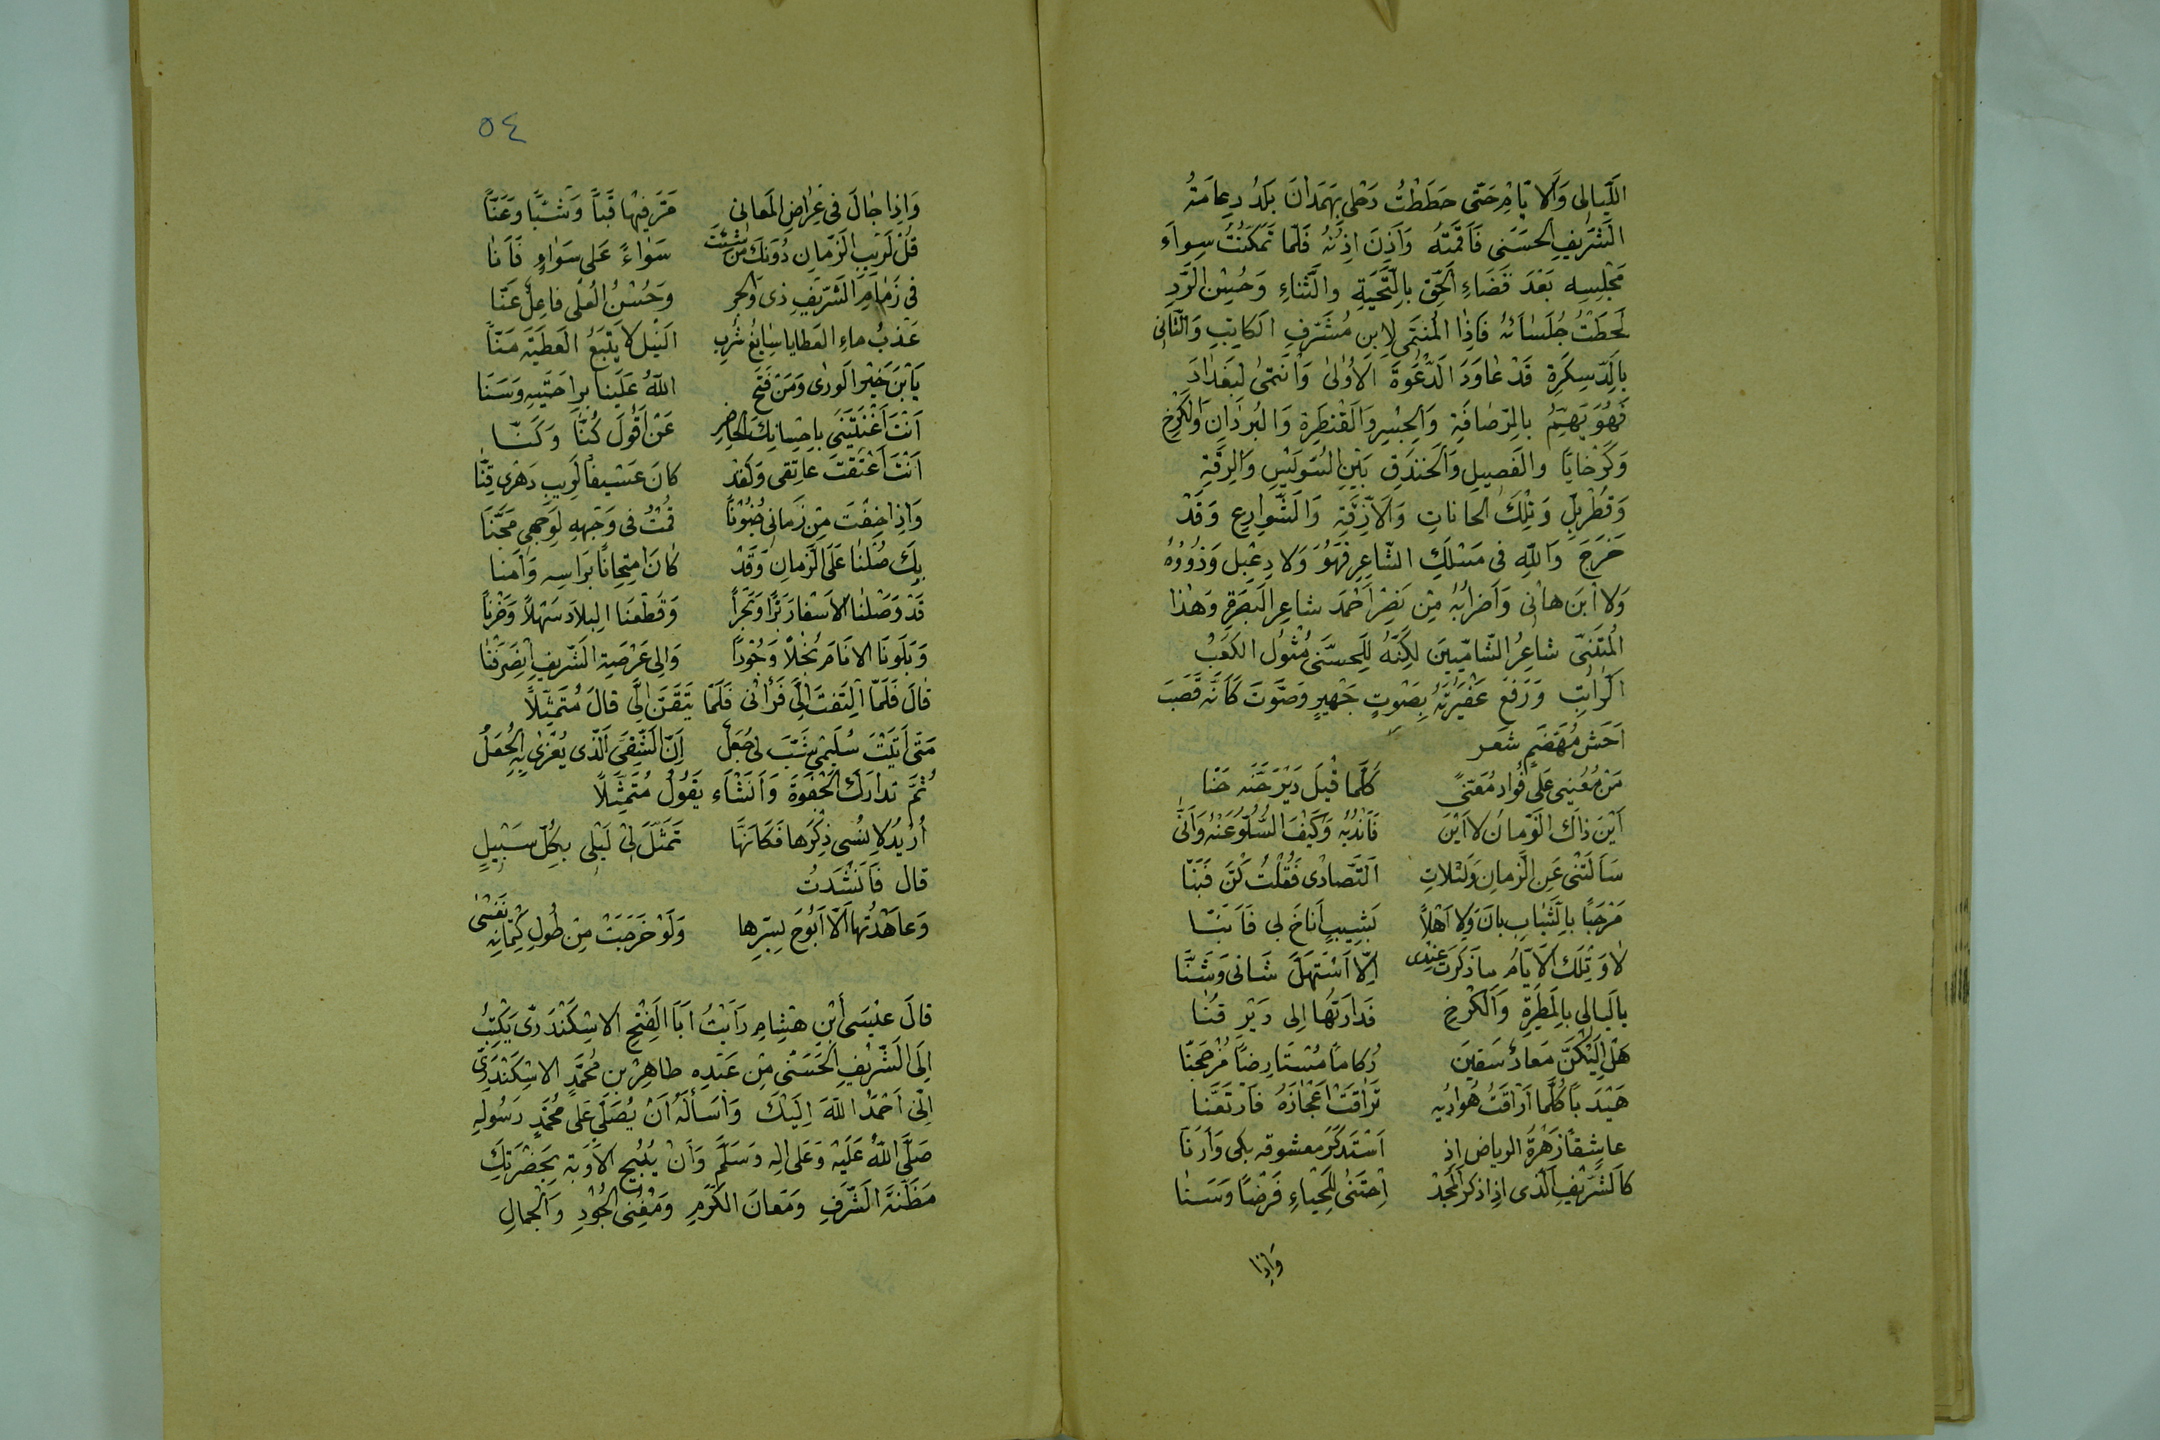 اللَّيالى وَالأيّامِ حَتّى حَطَطْتُ رَحْلى بِهَمَدانَ بَلَدُ دِعامَتُهُ
الشَّريفِ الحَسَنى فَاَقَمتُه وَاَذِنَ اِذنُهُ فَلَمّا تَمَكَّنْتُ سِواءَ
مَجْلِسِه بَعْدَ قَضَاءِ الحَقّ بِالتَّحيّةِ والثَّناءِ وَحُسْنِ الرَّدِ
لَحَظتُ جُلَساءَهُ فَاِذا المُنتَمى لِابنِ مُشَرَّفِ الكاتِبِ وَالثّانى
بِالدّسكَرة قَدْ عاوَدَ الدَّعْوَةَ الأوُلىٰ وَانتمىٰ لبَغدادَ
فَهُوَ يَهيمُ بِالرّصافَةِ وَالجِسْرِ وَالقَنطَرة وَالبُردانِ وَالكَرْخِ
وَكَرخايَا والفَصيلِ وَالخَندَقِ بَيْنِ السُورَيْنِ وَالرَّقّةِ
وَقُطْرَبُّلِ وَتِلْكَ الحانَاتِ وَالازِقّةِ وَالشَّوارِع وَقَدْ
خَرَجَ وَاللّهِ فى مَسْلَكِ الشّاعِرِ فَهُوَ وَلا دِعْبِل وَذَوُوهُ
وَلا ابنَ هانى وَاَضرابُهُ مِن نَصْر اَحْمَدَ شاعِرِ البَصَرةِ وَهٰذا
المُتَنَبّى شاعِرُ الشّامِيّينَ لٰكِنّهُ لِلحَسَنى مُثُولُ الكَعْبْ
الرَّاتِبِ وَرَفَعَ عَقيرَتَهُ بِصَوتٍ جَهيرٍ وَصَوَّتَ كَاَنّه قَصَب
اَحَشّ مُهَضّم شعَر
مَنْ مُعينى عَلى فُوادٍ مُعَنّىً كُلَّما قيلَ دَيْرُ حَنّه حَنّا
اَيْنَ ذاكَ الزّمانُ لا اَيْنَ فَانْدُبْه وَكَيْفَ السُّلُوّ عَنْهُ وَاَنّى
سَاَلَتْنى عَنِ الزَّمانِ وَلَيلاتِ التَّصادى فَقُلْتُ كُنّ فَبِنّا
مَرْحَبًا بِالشَّبابِ بانَ وَلا اَهْلاً بَشِيبٍ اَناخَ لى فَاَبَنّا
لا وَتِلْكَ الاَيّامُ ماذَكَرتُ عِندى اِلّا اسْتَهَلَّ شَانى وَشَنَّا
يا لَيالى بِالمَطيرةِ وَالكَرْخِ فَدارَتِها اِلى دَيْرِ قُنّا
هَلْ اِلَيْكُنّ مَعادٌ سَقيَن رُكامًا مُسْتَارِضًا مُرْجَحِنّا
هَيْدَبًا كُلَّما اَرَاقَتْ هَواديه تَراقَتْ اَعْجازُهُ فَارْتَعَنّا
عاشِقًا زَهرَةُ الرياض اِذ اَسْتَذكَرَ معشوقه بكى وَاَرَنّا
كاَلشَريفِ الَّذى اِذا ذكر المَجدْ اِحْتَنىٰ لِلحَياءِ فَرْضًا وَسَنّا
وَاِذا
٥٤
وَاِذا جالَ فى عِراضِ المَعانى مَرّ فيها فَبًا وَشَنًّا وَعَنّا
قُلْ لَرَيْبِ الزّمانِ دُونَكَ مَنْ شِئتَ سَواءً عَلى سَواءٍ فَاَنا
فى زِمامِ الشَّرَيفِ ذى والحِر وَحُسْنُ العُلى فاعِلٌ عَنّا
عَذبُ ماءِ العَطايا سِايِغُ شُربِ النَيل لا يتْبَعُ العَطيّه مَنّا
يَابْنَ خَيْرِ الوَرى وَمَنْ فَتَح اللّهُ عَلَينا بِراحَتَيهِ وَسَنّا
اَنْتَ اَغْنَيْتَنى بِاِحسانِكَ الحاضِرِ عَنْ اَقُولَ كُنّا وَكنّا
اَنْتَ اَعْتَقْتَ عاتِقى وَلَقَدْ كانَ عَسيفًا لِرَيبِ دَهْرى قِنّا
وَاِذا خِفْتَ مِن زَمانى ضُنُونًا قُمْتُ فى وَجْهِهِ لِوَجهى مَجّنّا
بِكَ صُلْنا عَلى الزَّمانِ وَقَدْ كانَ اِمتِحانًا بَرَاسِه وَاَمِنا
قَدْ وَصَلْنا الأسْفارَ بَرًّا وَبَحْراً وَقَطَعْنَا البِلادَ سَهْلاً وَحَزْنًا
وَبَلَونَا الانَامَ بُخلاً وَجُودًا وَالى عَرْصَةِ الشّريفِ اِنْصَرَفْنا
قالَ فَلَمّا اِلتَفتَ اِلَىَّ فَرَانى فَلَمّا تَيَقّنَ لى قالَ مُتَمَثِّلاً
مَتى اَتَيْتُ سُلَيْمى شَبّ لى جُعَل اِنّ الشَّقىَّ الَّذى يُغْرىٰ بِهِ الجُعَلُ
ثُمَّ تَدارَكَ الحَفْوَةَ وَاَنْشَاء يَقُولُ مُتَمَثِّلاً
اُريدُ لاِنْسى ذِكْرَها فَكَانَّها تَمَثَّلَ لى لَيْلى بِكُلّ سَبيلِ
قال فَاَنْشَدتُ
وَعاهَدْتُها اَلّا اَبُوحَ بِسِرِّها وَلَوْ خَرَجَتْ مِن طُولِ كِتْمانِه نَفْسى
قالَ عيسَى ابْنِ هِشامِ رَاَيْتُ اَبَا الفَتْحِ الاسِكَنْدَرىّ يَكتُبُ
اِلَى الشَّريْفِ الحَسَنّى مِن عَبْدِهِ طاهِرْ بنِ مُحَمَّدٍ الاسِكَنْدَرىّ
اِنّى اَحْمَدُ اللّهَ اِلَيْكَ وَاَسأَلُهُ اَنْ يُصَلّى عَلى مُحَمَّدٍ رَسُولِهِ
صَلَّى اللّهُ عَلَيْهِ وَعَلى الِهِ وَسَلَّمَ وَاَنْ يُبيحَ الأوبَة بِحَضْرَتِكَ
مَظَنَّةَ الشَّرَفِ وَمَعانَ الكَرَمِ وَمَغْنِى الجُوْدِ وَالجمالِ